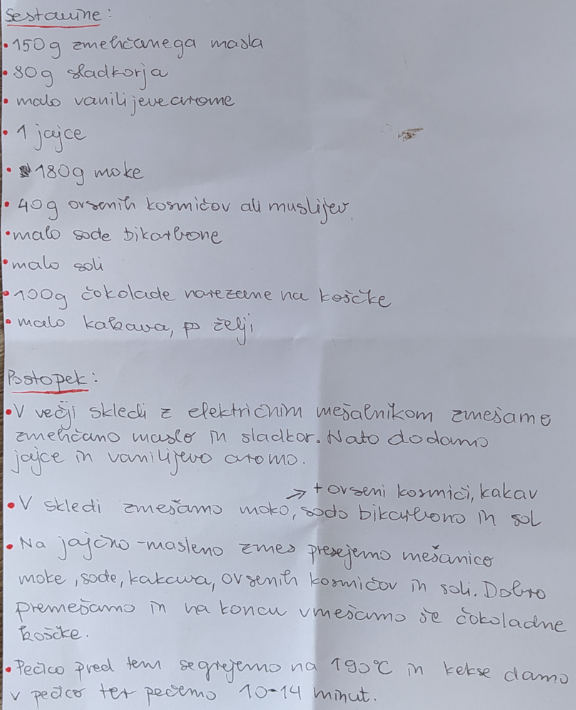 Sestavine:
• 150g zmehčanega masla
• 80g sladkorja
• malo vanilijeve arome
• 1 jajce
• 180g moke
• 40g ovsenih kosmičov ali muslijev
• malo sode bikarbone
• malo soli
• 100g čokolade narezane na koščke
• malo kakava, po želji
Postopek:
• V večji skledi z električnim mešalnikom zmešamo
zmehčano maslo in sladkor. Nato dodamo
jajce in vanilijevo aromo.
→ + ovseni kosmiči, kakav
• V skledi zmešamo moko, sodo bikarbono in sol
• Na jajčno-masleno zmes presejemo mešanico
moke, sode, kakava, ovsenih kosmičov in soli. Dobro
premešamo in na koncu vmešamo še čokoladne
koščke.
• Pečico pred tem segrejemo na 190°C in kekse damo
v pečico ter pečemo 10-14 minut.